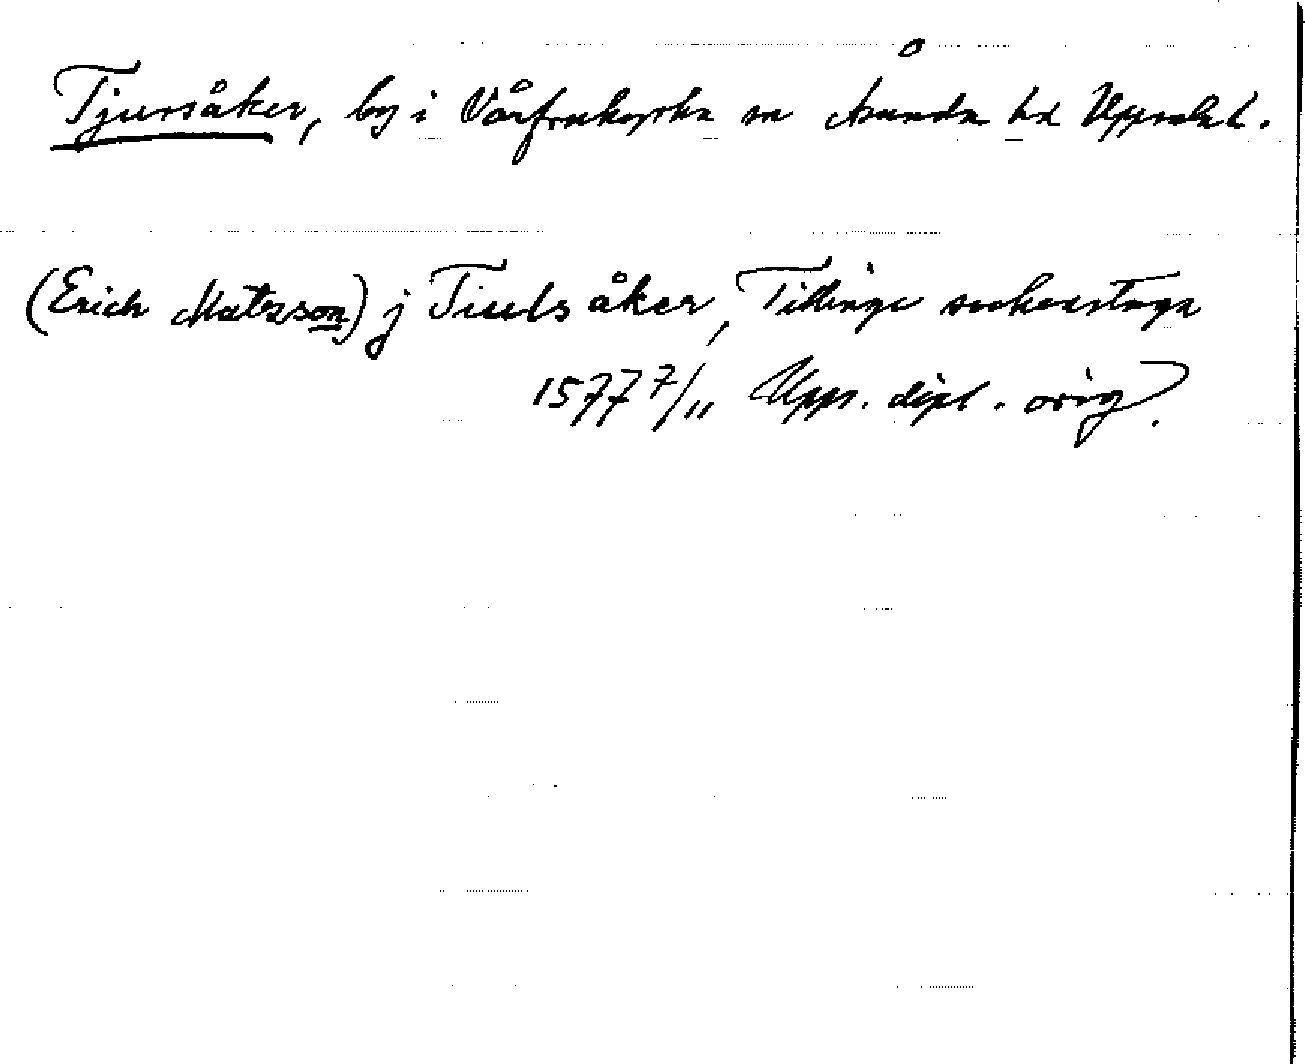 Tjursåker, by i Vårfrukyrka sn Åsunda hd Uppsala l.
(Erich Matzson) j Tiuls åker, Tillinge sockerstuge
1577 7/11 Upps. dipl. orig.